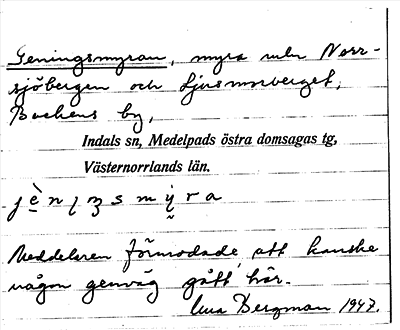 Geningsmyran, myra mln Norr-
sjöbergen och Ljusmorberget,
Backens by,
Indals sn, Medelpads östra domsagas tg,
Västernorrlands län.
jè̱nıŋsmy̆ra
Meddelaren förmodade att kanske
någon genväg gått här.
Bergman 1947.